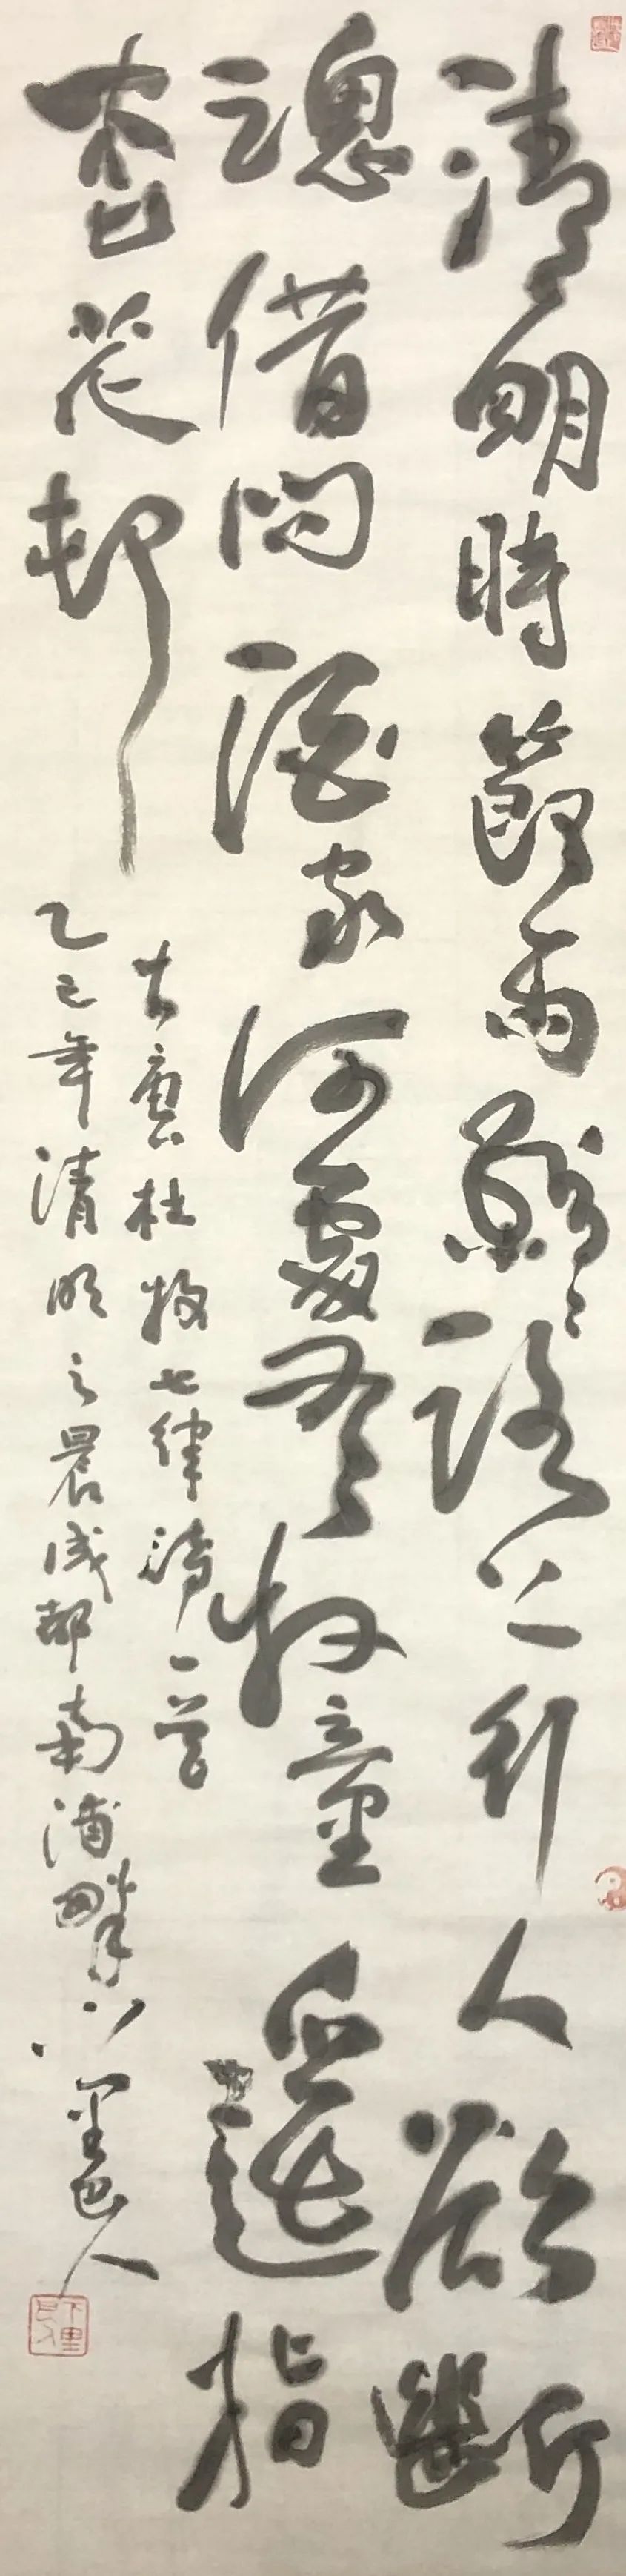 清明時節雨紛々路上行人欲斷
魂借問酒家何處有牧童遥指
杏花邨
唐杜牧七律詩一首
乙巳年清明之晨成都南浦畔下里巴人
下里巴人